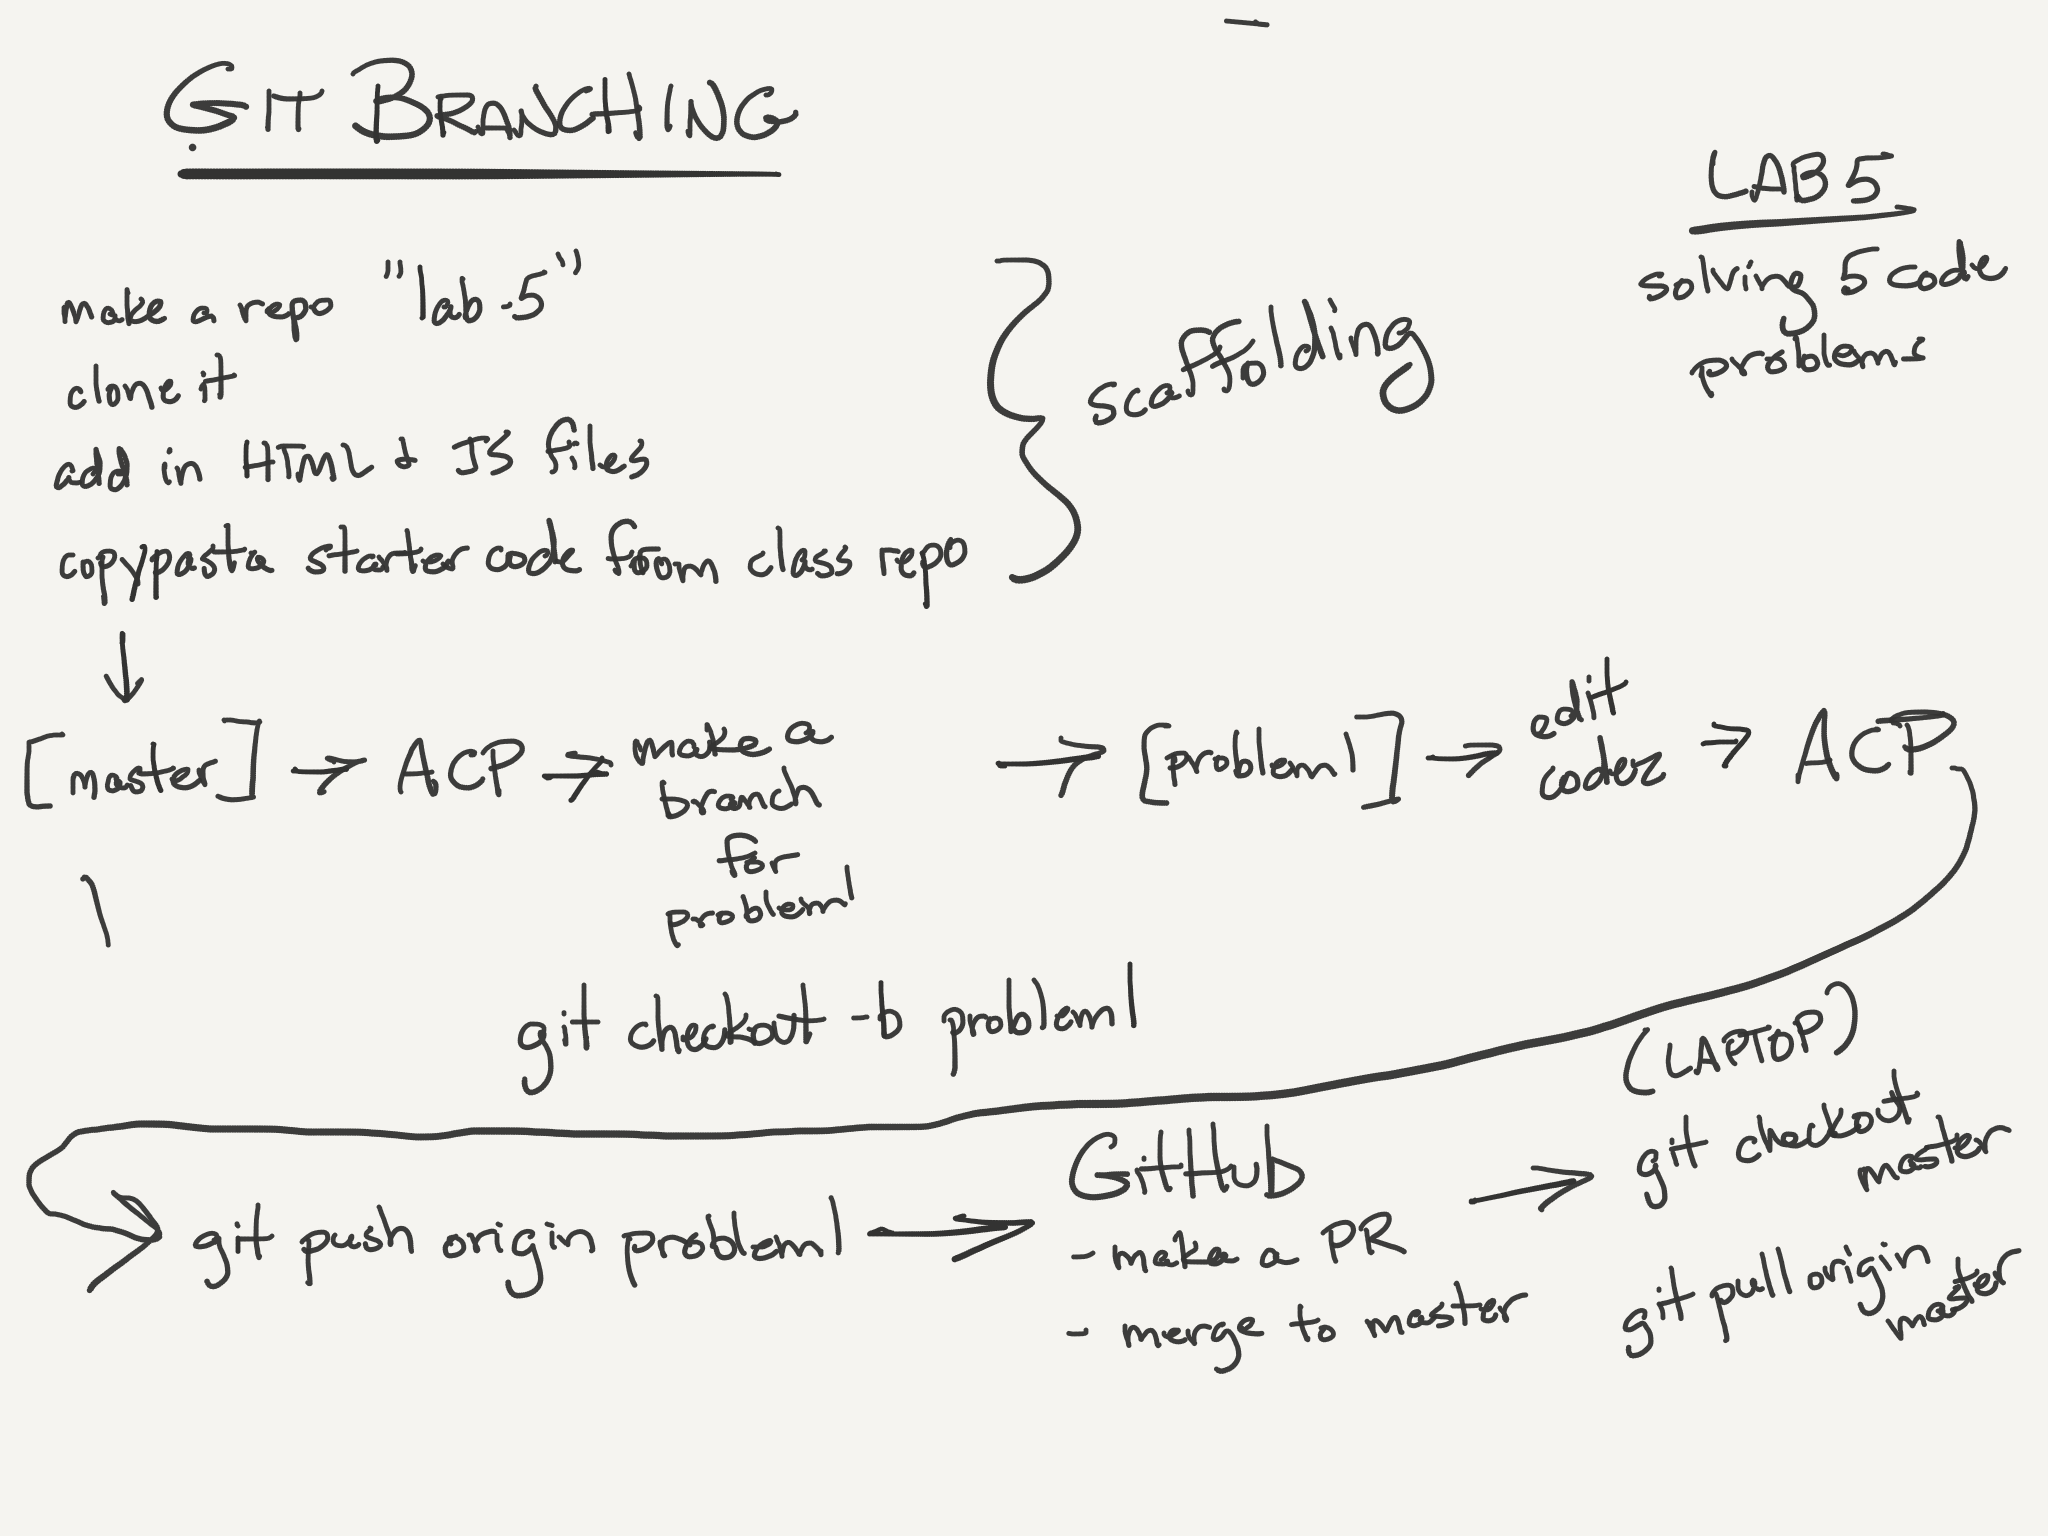 GIT BRANCHING
LAB 5
solving 5 code
problems
make a repo "lab-5"
clone it
add in HTML & JS files
copypasta starter code from class repo
scaffolding
[master] → ACP → make a
branch
for
problem1
→ [problem1] → edit
codez
→ ACP
git checkout -b problem1
git push origin problem1 →
GitHub
- make a PR
- merge to master
→
(LAPTOP)
git checkout
master
git pull origin
master